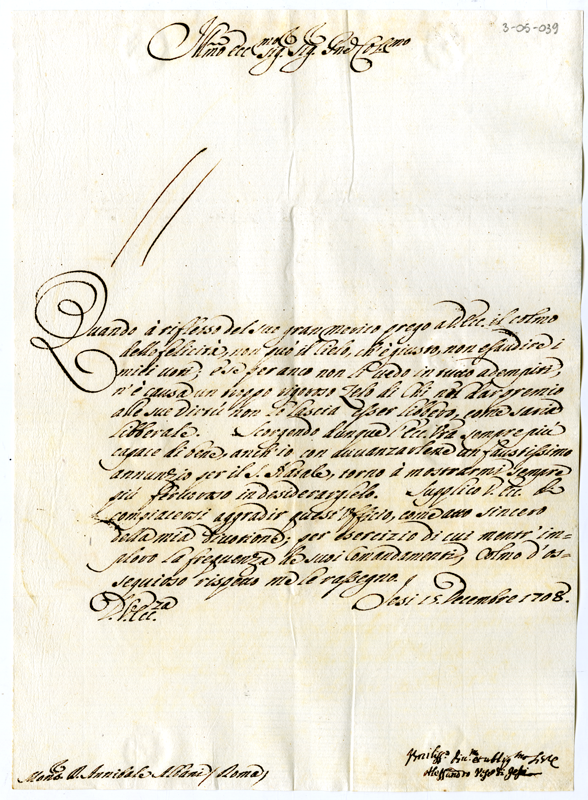 3-05-039
Illmo ecc Sig. Sig.
Quando à riflesso del suo gran merito prego a V. Ecc. il colmo
delle felicità, non può il Cielo, ch'è giusto, non esaudire i
miei voti; e se per anco non li vedo in tutto adempiti,
n'è causa un troppo rigoroso Zelo di Chi nel dar premio
alle sue Virtù non lo lascia esser libbero, come saria
libberale. Scorgendo dunque l'Ecc. Vra sempre più
capace di bene, anch'io con avvanzarlene un faustissimo
annunzio per il S. Natale, torno à mostrarmi sempre
più fervoroso in desiderarglelo. Supplico V. Ecc. de
compiacersi aggradir quest'Uffizio, come atto sincero
della mia divotione; per esercizio di cui mentr'im-
ploro la frequenza de suoi Comandamenti, colmo d'os-
sequioso rispetto me le rassegno.
D. V. Ecc.za Jesi 15 Decembre 1708.
Monsr. D. Annibale Albani (Roma)
Alessandro Vesc. di Jesi